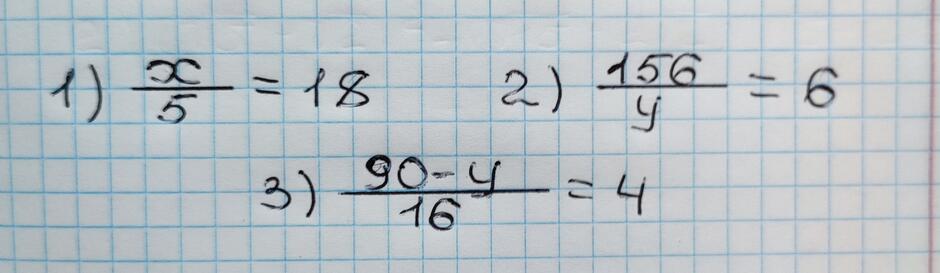 1) x/5 = 18 2) 156/y = 6
3) (90-y)/16 = 4